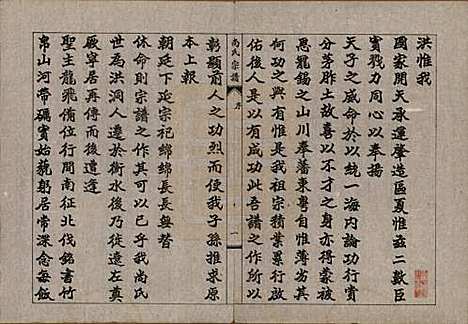 洪惟我
國家開天承運肇造區夏惟茲二數臣
實戮力同心以奉揚
天子之威命於以統一海內論功行賞
分茅胙土故喜以不才尋亦得蒙
恩寵錫之山川奉藩東粵自惟薄劣其
何功之與有惟是我祖宗積業累行啟
佑後人是以有成功此吾譜之作所以
尚氏宗譜
序
一
彰顯前人之功烈而使我子孫推求原
本上報
朝廷下延宗祀綿綿長長無替
休命則宗譜之作其可已乎我尚氏
世為洪洞人遷於衡水後乃徙遼左真
厥寧居再傳而後遭逢
聖主龍飛備位行間南征北伐銘書竹
帛山河帶礪實始藐躬居常深念每飯